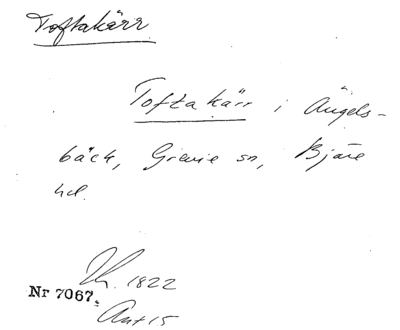 Toftakärr
Toftakärr i Ängels-
bäck, Grevie sn, Bjäre
hd.
1822
Nr 7067.
Ant 15